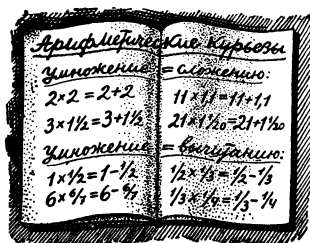 Арифметические курьезы
Умножение = сложению:
2×2 = 2+2
3×1½ = 3+1½
11×1,1 = 11+1,1
21×1 1/20 = 21+1 1/20
Умножение = вычитанию:
1×½ = 1-½
6×6/7 = 6-6/7
½×⅓ = ½-⅓
⅓×¼ = ⅓-¼